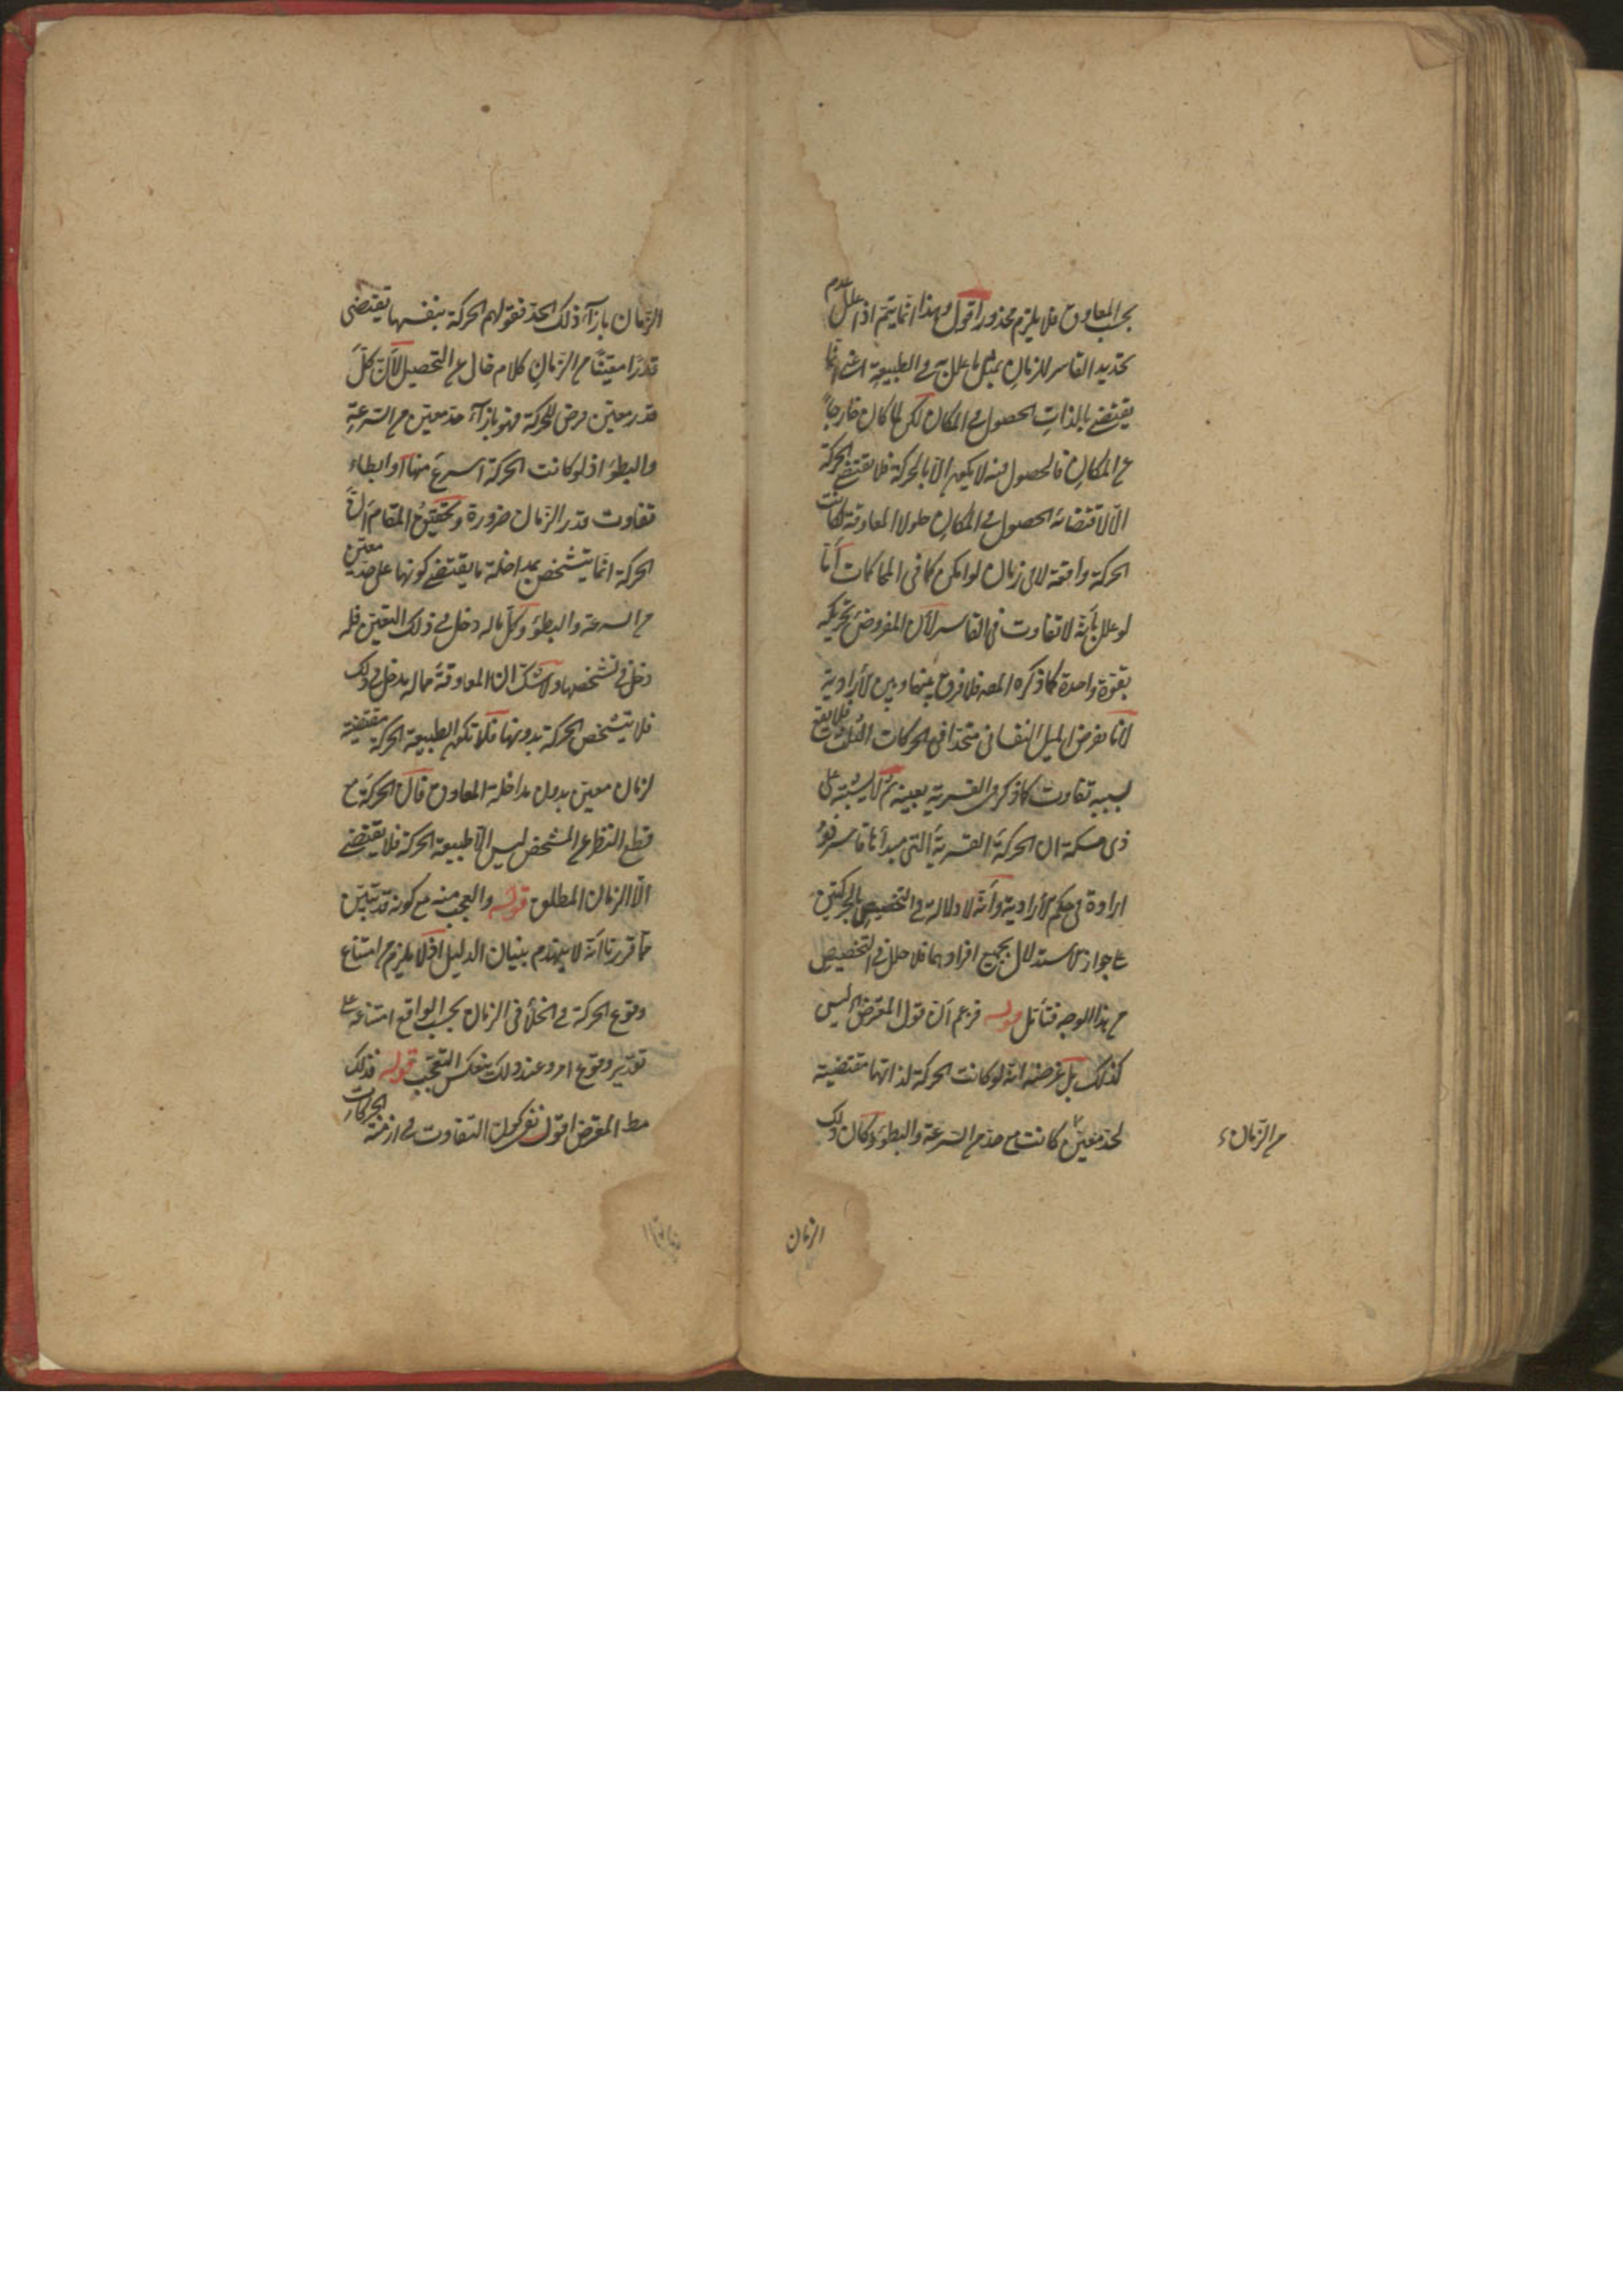 بحسب المعاوق فلا يلزم محذور اقول وهذا انما يتم اذا علل عدم
تحديد القاسر للزمان بمثل ما علل به في الطبيعة اعني انها
يقتضى بالذات الحصول في المكان لكن لما كان خارجا
عن المكان فالحصول فيه لا يكون الا بالحركة فلا يقتضى الحركة
الا لاقتضائه الحصول في المكان فلولا المعاوقة لكانت
الحركة واقعة لا في زمان لو امكن كما في المحاكمات اما
لو علل بانه لا تفاوت في القاسر لان المفروض تحريكه
بقوة واحدة كما ذكره المصه فلا فرق بينها وبين الارادية
لانا نفرض الميل النفسانى متحدا في الحركات الثلث فلا يقع
بسببه تفاوت كما ذكر في القسرية بعينه ثم لا يشتبه على
ذى مسكة ان الحركة القسرية التى مبدأها قاسر ذو
ارادة في حكم الارادية وانه لا دلالة في التخصيص بالحركتين
على جواز الاستدلال بجميع افرادهما فلا خلل في التخصيص
من هذا الوجه فتأمل قوله فزعم ان قول المعترض اه ليس
كذلك بل غرضه انه لو كانت الحركة لذاتها مقتضية
لحد معين كانت مع حد من السرعة والبطؤ وكان ذلك
من الزمان
الزمان
الزمان بازآء ذلك الحد فقولهم الحركة بنفسها تقتضى
قدرا معينا من الزمان كلام خال عن التحصيل لان كل
قدر معين فرض للحركة فهو بازآء حد معين من السرعة
والبطؤ اذ لو كانت الحركة اسرع منها او ابطاء
تفاوت قدر الزمان ضرورة وتحقيق المقام ان
الحركة انما يتشخص بمداخلة ما يقتضى كونها على حد معين
من السرعة والبطؤ وكل ما له دخل في ذلك التعين فله
دخل في تشخصها ولا شك ان المعاوقة مما له مدخل في ذلك
فلا يتشخص الحركة بدونها فلا تكون الطبيعة الحركة مقتضية
لزمان معين بدون مداخلة المعاوق فان الحركة مع
قطع النظر عن المشخص ليس الا طبيعة الحركة فلا يقتضى
الا الزمان المطلق قوله والعجب منه مع كونه قد تبين
مما قررنا انه لا ينهدم بنيان الدليل اذ لا يلزم من امتناع
وقوع الحركة في الخلأ في الزمان بحسب الواقع امتناعه على
تقدير وقوع امر وعند ذلك ينعكس التعجب قوله فذلك
مط المعترض اقول نفى كون التفاوت في ازمنة الحركات